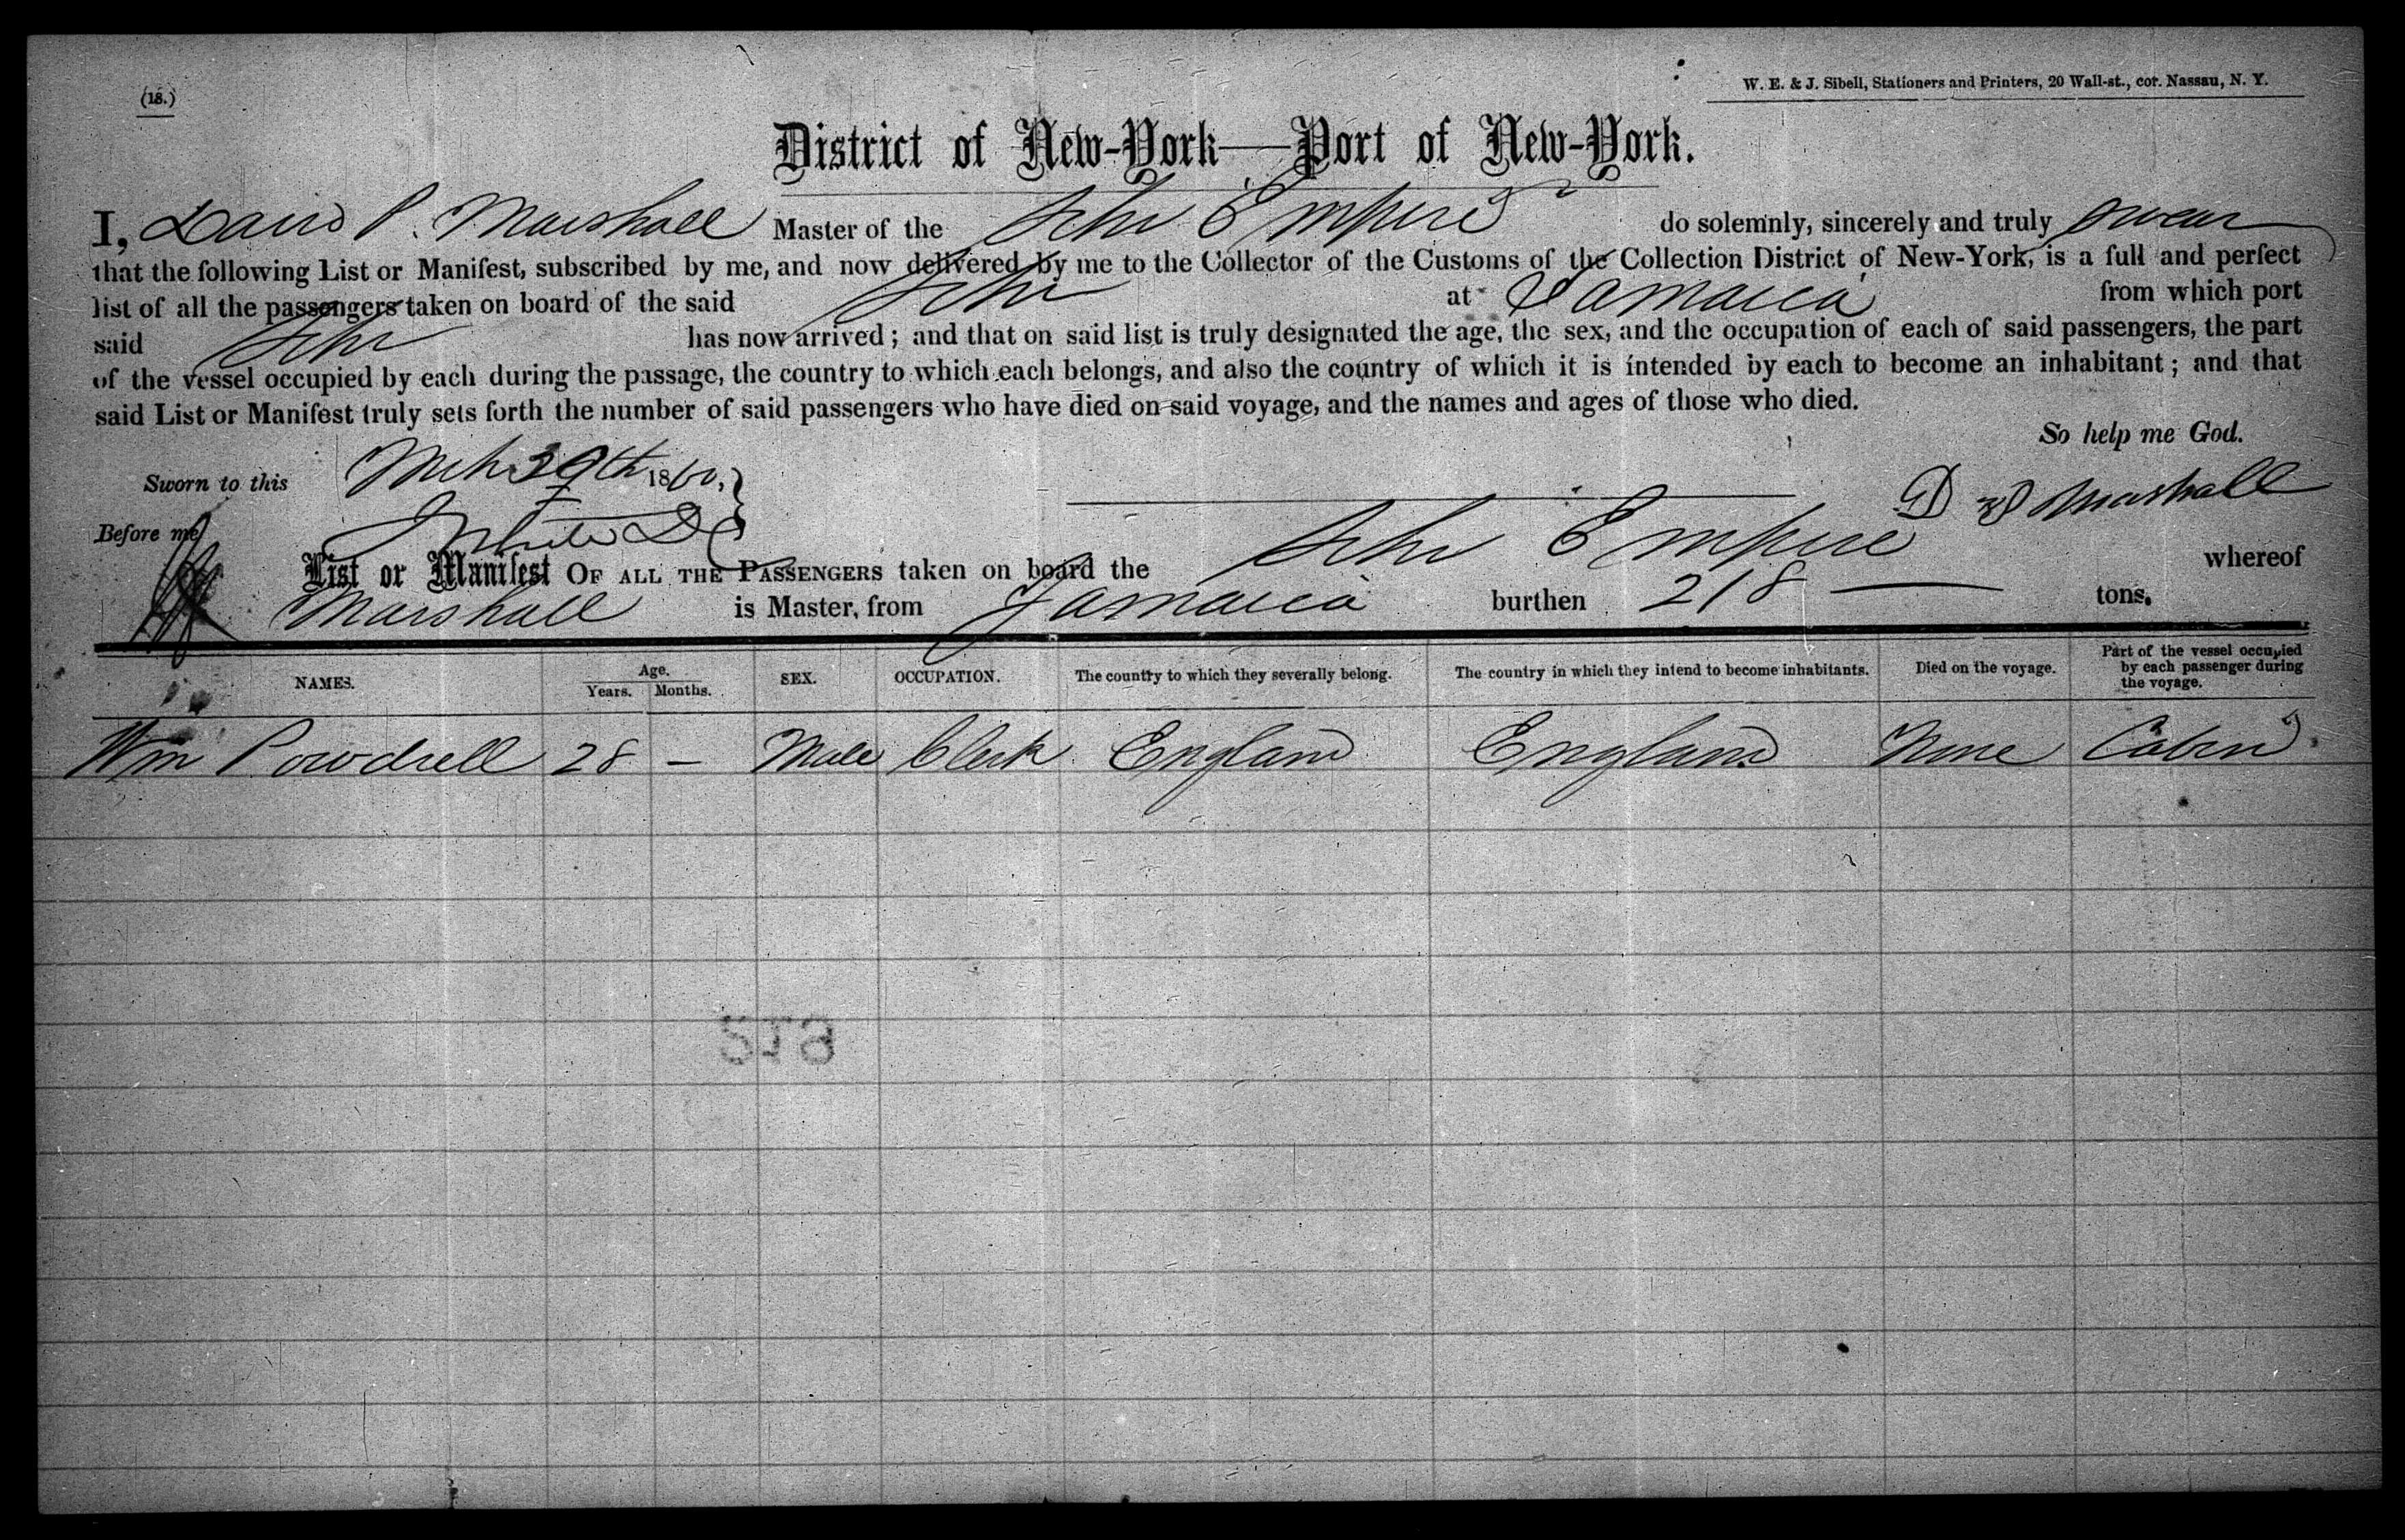 (18.)
W. E. & J. Sibell, Stationers and Printers, 20 Wall-st., cor. Nassau, N. Y.
District of New-York—Port of New-York.
I, David P. Marshall Master of the Schr Empire do solemnly, sincerely and truly swear
that the following List or Manifest, subscribed by me, and now delivered by me to the Collector of the Customs of the Collection District of New-York, is a full and perfect
list of all the passengers taken on board of the said Schr at Jamaica from which port
said Schr has now arrived; and that on said list is truly designated the age, the sex, and the occupation of each of said passengers, the part
of the vessel occupied by each during the passage, the country to which each belongs, and also the country of which it is intended by each to become an inhabitant; and that
said List or Manifest truly sets forth the number of said passengers who have died on said voyage, and the names and ages of those who died.
So help me God.
Sworn to this Mch 29th 1860,
D P Marshall
Before me
List or Manifest OF ALL THE PASSENGERS taken on board the Schr Empire whereof
Marshall is Master, from Jamaica burthen 218 — tons.
NAMES. Age. Years. Months. SEX. OCCUPATION. The country to which they severally belong. The country in which they intend to become inhabitants. Died on the voyage. Part of the vessel occupied by each passenger during the voyage.
Wm Powdrell 28 – Male Clerk England England None Cabin